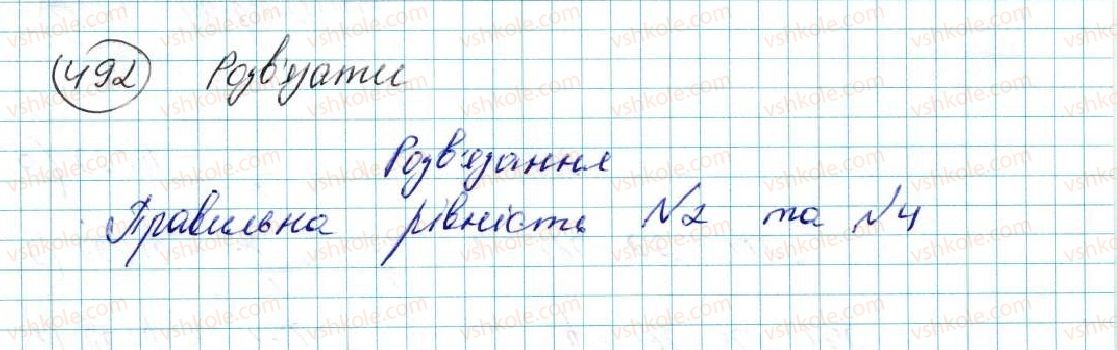 492 Розв'язати
Розв'язання
Правильна рівність №2 та №4